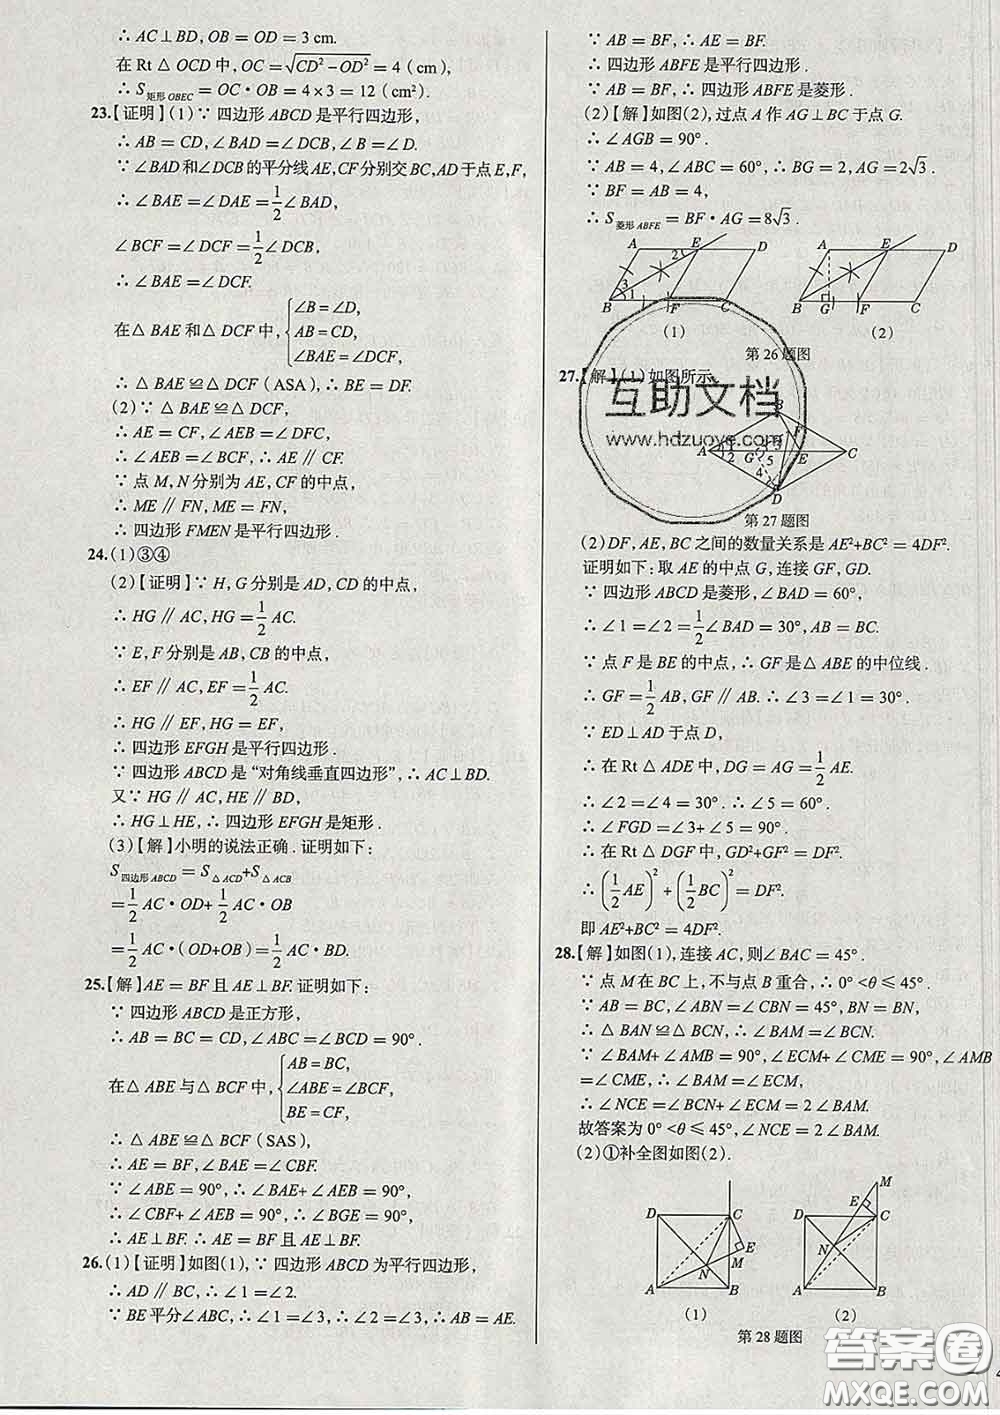 ∴ AC⊥BD, OB = OD = 3 cm.
在 Rt△OCD 中, OC = √(CD²−OD²) = 4 (cm),
∴ S矩形OBEC = OC·OB = 4×3 = 12 (cm²).
23.【证明】(1)∵ 四边形 ABCD 是平行四边形,
∴ AB = CD, ∠BAD = ∠DCB, ∠B = ∠D.
∵ ∠BAD 和∠DCB 的平分线 AE, CF 分别交 BC, AD 于点 E, F,
∴ ∠BAE = ∠DAE = 1/2 ∠BAD,
∠BCF = ∠DCF = 1/2 ∠DCB,
∴ ∠BAE = ∠DCF.
在△BAE 和△DCF 中, { ∠B = ∠D,
AB = CD,
∠BAE = ∠DCF,
∴ △BAE ≌ △DCF (ASA), ∴ BE = DF.
(2)∵ △BAE ≌ △DCF,
∴ AE = CF, ∠AEB = ∠DFC,
∴ ∠AEB = ∠BCF, ∴ AE ∥ CF.
∵ 点 M, N 分别为 AE, CF 的中点,
∴ ME ∥ FN, ME = FN,
∴ 四边形 FMEN 是平行四边形.
24.(1)③④
(2)【证明】∵ H, G 分别是 AD, CD 的中点,
∴ HG ∥ AC, HG = 1/2 AC.
∵ E, F 分别是 AB, CB 的中点,
∴ EF ∥ AC, EF = 1/2 AC.
∴ HG ∥ EF, HG = EF,
∴ 四边形 EFGH 是平行四边形.
∵ 四边形 ABCD 是“对角线垂直四边形”, ∴ AC⊥BD.
又∵ HG ∥ AC, HE ∥ BD,
∴ HG⊥HE, ∴ 四边形 EFGH 是矩形.
(3)【解】小明的说法正确. 证明如下:
S四边形ABCD = S△ACD + S△ACB
= 1/2 AC·OD + 1/2 AC·OB
= 1/2 AC·(OD+OB) = 1/2 AC·BD.
25.【解】AE = BF 且 AE⊥BF. 证明如下:
∵ 四边形 ABCD 是正方形,
∴ AB = BC = CD, ∠ABC = ∠BCD = 90°.
在△ABE 与△BCF 中, { AB = BC,
∠ABE = ∠BCF,
BE = CF,
∴ △ABE ≌ △BCF (SAS),
∴ AE = BF, ∠BAE = ∠CBF.
∵ ∠ABE = 90°, ∴ ∠BAE + ∠AEB = 90°,
∴ ∠CBF + ∠AEB = 90°, ∴ ∠BGE = 90°,
∴ AE⊥BF. ∴ AE = BF 且 AE⊥BF.
26.(1)【证明】如图(1), ∵ 四边形 ABCD 为平行四边形,
∴ AD ∥ BC, ∴ ∠1 = ∠2.
∵ BE 平分∠ABC, ∴ ∠1 = ∠3, ∴ ∠2 = ∠3, ∴ AB = AE.
∵ AB = BF, ∴ AE = BF.
∴ 四边形 ABFE 是平行四边形.
∵ AB = BF, ∴ 四边形 ABFE 是菱形.
(2)【解】如图(2), 过点 A 作 AG⊥BC 于点 G.
∴ ∠AGB = 90°.
∵ AB = 4, ∠ABC = 60°, ∴ BG = 2, AG = 2√3.
∵ BF = AB = 4,
∴ S菱形ABFE = BF·AG = 8√3.
A E D 2 3 1 B F C
A E D B G F C
(1) (2)
第 26 题图
27.【解】(1)如图所示.
B F A 1 2 G 3 E C 5 4 D
第 27 题图
互助文档
www.hdzuoye.com
(2)DF, AE, BC 之间的数量关系是 AE²+BC² = 4DF².
证明如下: 取 AE 的中点 G, 连接 GF, GD.
∵ 四边形 ABCD 是菱形, ∠BAD = 60°,
∴ ∠1 = ∠2 = 1/2 ∠BAD = 30°, AB = BC.
∵ 点 F 是 BE 的中点, ∴ GF 是△ABE 的中位线.
∴ GF = 1/2 AB, GF ∥ AB. ∴ ∠3 = ∠1 = 30°.
∵ ED⊥AD 于点 D,
∴ 在 Rt△ADE 中, DG = AG = 1/2 AE.
∴ ∠2 = ∠4 = 30°. ∴ ∠5 = 60°.
∴ ∠FGD = ∠3 + ∠5 = 90°.
∴ 在 Rt△DGF 中, GD²+GF² = DF².
∴ (1/2 AE)² + (1/2 BC)² = DF².
即 AE²+BC² = 4DF².
28.【解】如图(1), 连接 AC, 则∠BAC = 45°.
∵ 点 M 在 BC 上, 不与点 B 重合, ∴ 0° < θ ≤ 45°.
∵ AB = BC, ∠ABN = ∠CBN = 45°, BN = BN,
∴ △BAN ≌ △BCN, ∴ ∠BAM = ∠BCN.
∵ ∠BAM + ∠AMB = 90°, ∠ECM + ∠CME = 90°, ∠AMB
= ∠CME, ∴ ∠BAM = ∠ECM,
∴ ∠NCE = ∠BCN + ∠ECM = 2∠BAM.
故答案为 0° < θ ≤ 45°, ∠NCE = 2∠BAM.
(2)①补全图如图(2).
D C E M N A B
M E D C N A B
(1) (2)
第 28 题图
答案圈
MXQE.COM
4